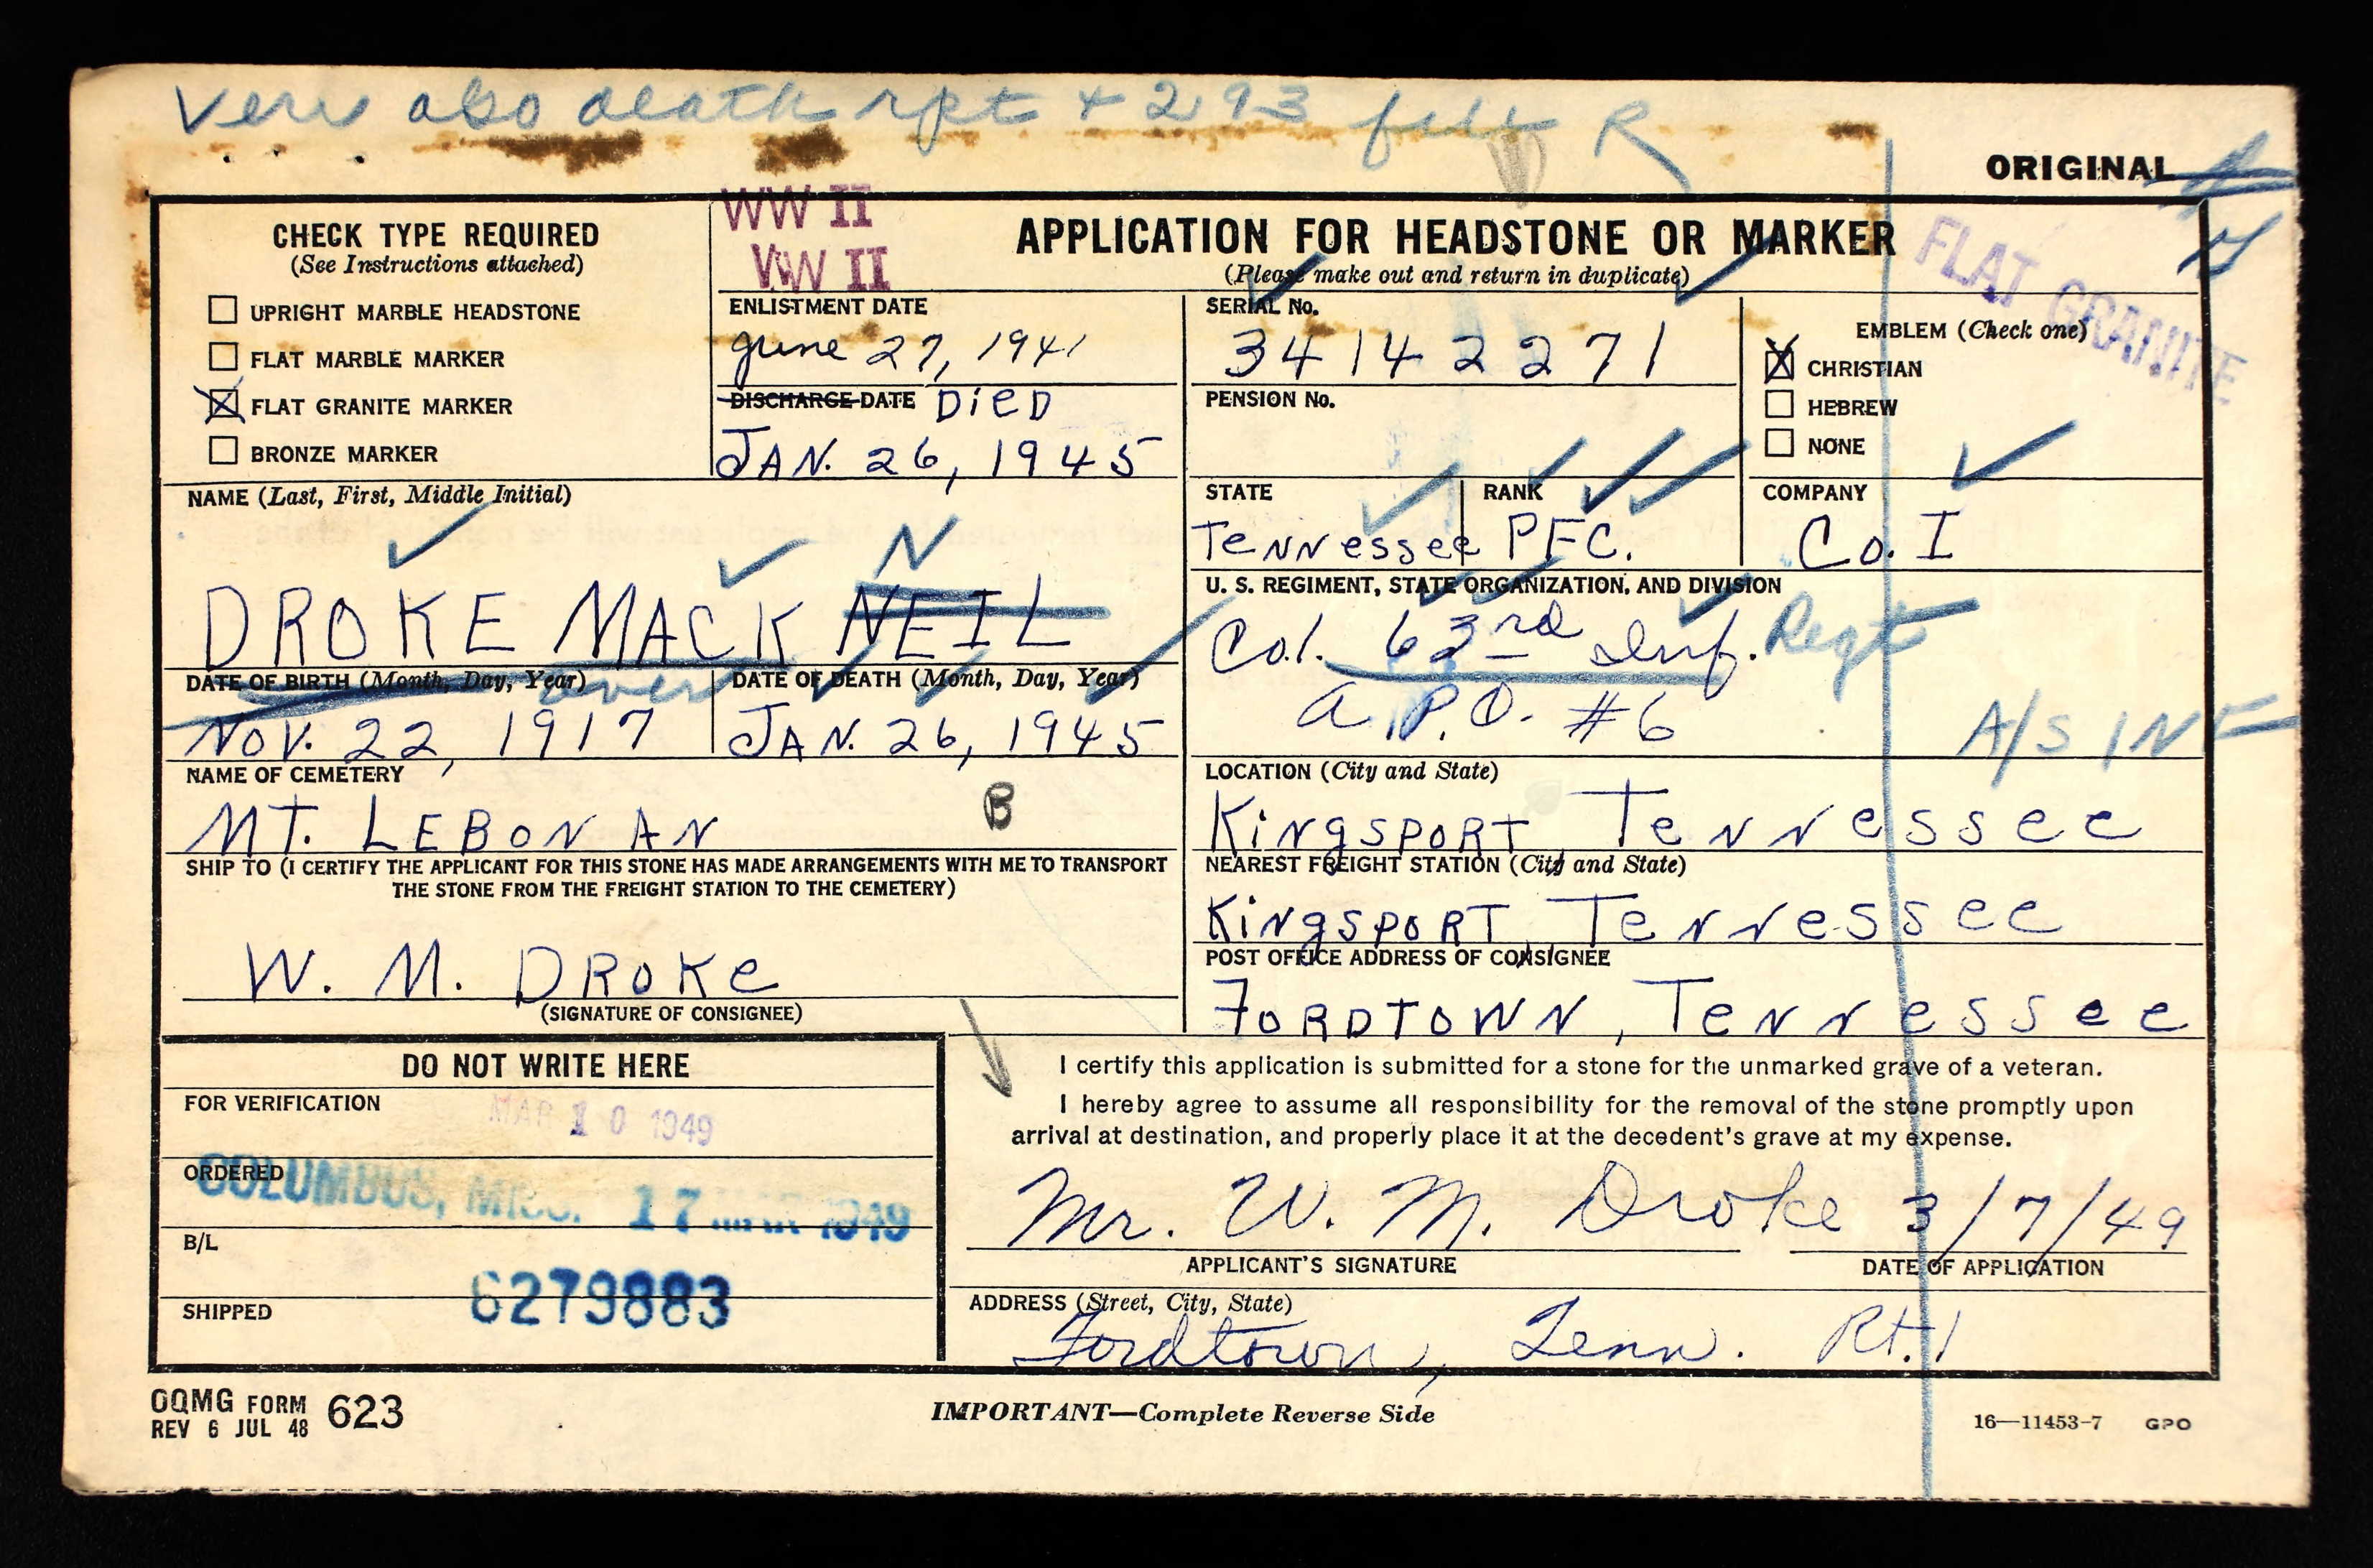 Veri also death rpt + 293 R
ORIGINAL
WW II
WW II
CHECK TYPE REQUIRED
(See Instructions attached)
UPRIGHT MARBLE HEADSTONE
FLAT MARBLE MARKER
X FLAT GRANITE MARKER
BRONZE MARKER
APPLICATION FOR HEADSTONE OR MARKER
(Please make out and return in duplicate)
FLAT GRANITE
ENLISTMENT DATE
June 27, 1941
DISCHARGE DATE DieD
JAN. 26, 1945
SERIAL No.
34142271
PENSION No.
EMBLEM (Check one)
X CHRISTIAN
HEBREW
NONE
NAME (Last, First, Middle Initial)
N
DROKE MACK NEIL
STATE
Tennessee
RANK
PFC.
COMPANY
Co. I
U. S. REGIMENT, STATE ORGANIZATION, AND DIVISION
Co.I. 63rd Inf. Regt
A.P.O. #6
A/S INF
DATE OF BIRTH (Month, Day, Year) over
NOV. 22, 1917
DATE OF DEATH (Month, Day, Year)
JAN. 26, 1945
NAME OF CEMETERY
MT. LEBONAN B
LOCATION (City and State)
KiNgSPORT, Tennessee
SHIP TO (I CERTIFY THE APPLICANT FOR THIS STONE HAS MADE ARRANGEMENTS WITH ME TO TRANSPORT
THE STONE FROM THE FREIGHT STATION TO THE CEMETERY)
W. M. DROKe
(SIGNATURE OF CONSIGNEE)
NEAREST FREIGHT STATION (City and State)
KiNgSPORT, Tennessee
POST OFFICE ADDRESS OF CONSIGNEE
FORDTOWN, Tennessee
DO NOT WRITE HERE
FOR VERIFICATION
MAR 10 1949
ORDERED
COLUMBUS, MISS. 17 MAR 1949
B/L
6279883
SHIPPED
I certify this application is submitted for a stone for the unmarked grave of a veteran.
I hereby agree to assume all responsibility for the removal of the stone promptly upon
arrival at destination, and properly place it at the decedent's grave at my expense.
Mr. W. M. Droke 3/7/49
APPLICANT'S SIGNATURE
DATE OF APPLICATION
ADDRESS (Street, City, State)
Fordtown, Tenn. Rt. 1
OQMG FORM 623
REV 6 JUL 48
IMPORTANT—Complete Reverse Side
16—11453-7 GPO